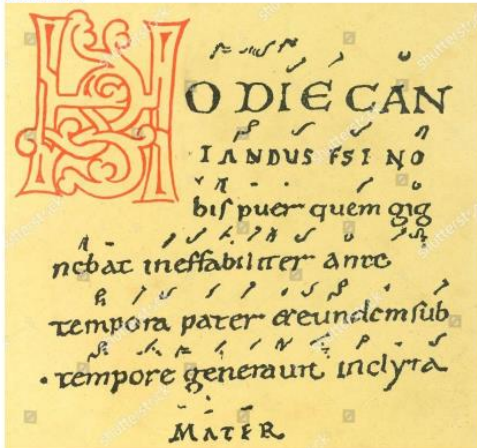 HODIE CAN
TANDUS EST NO
bis puer quem gig
nebat ineffabiliter ante
tempora pater & eundem sub
tempore generavit inclyta
MATER